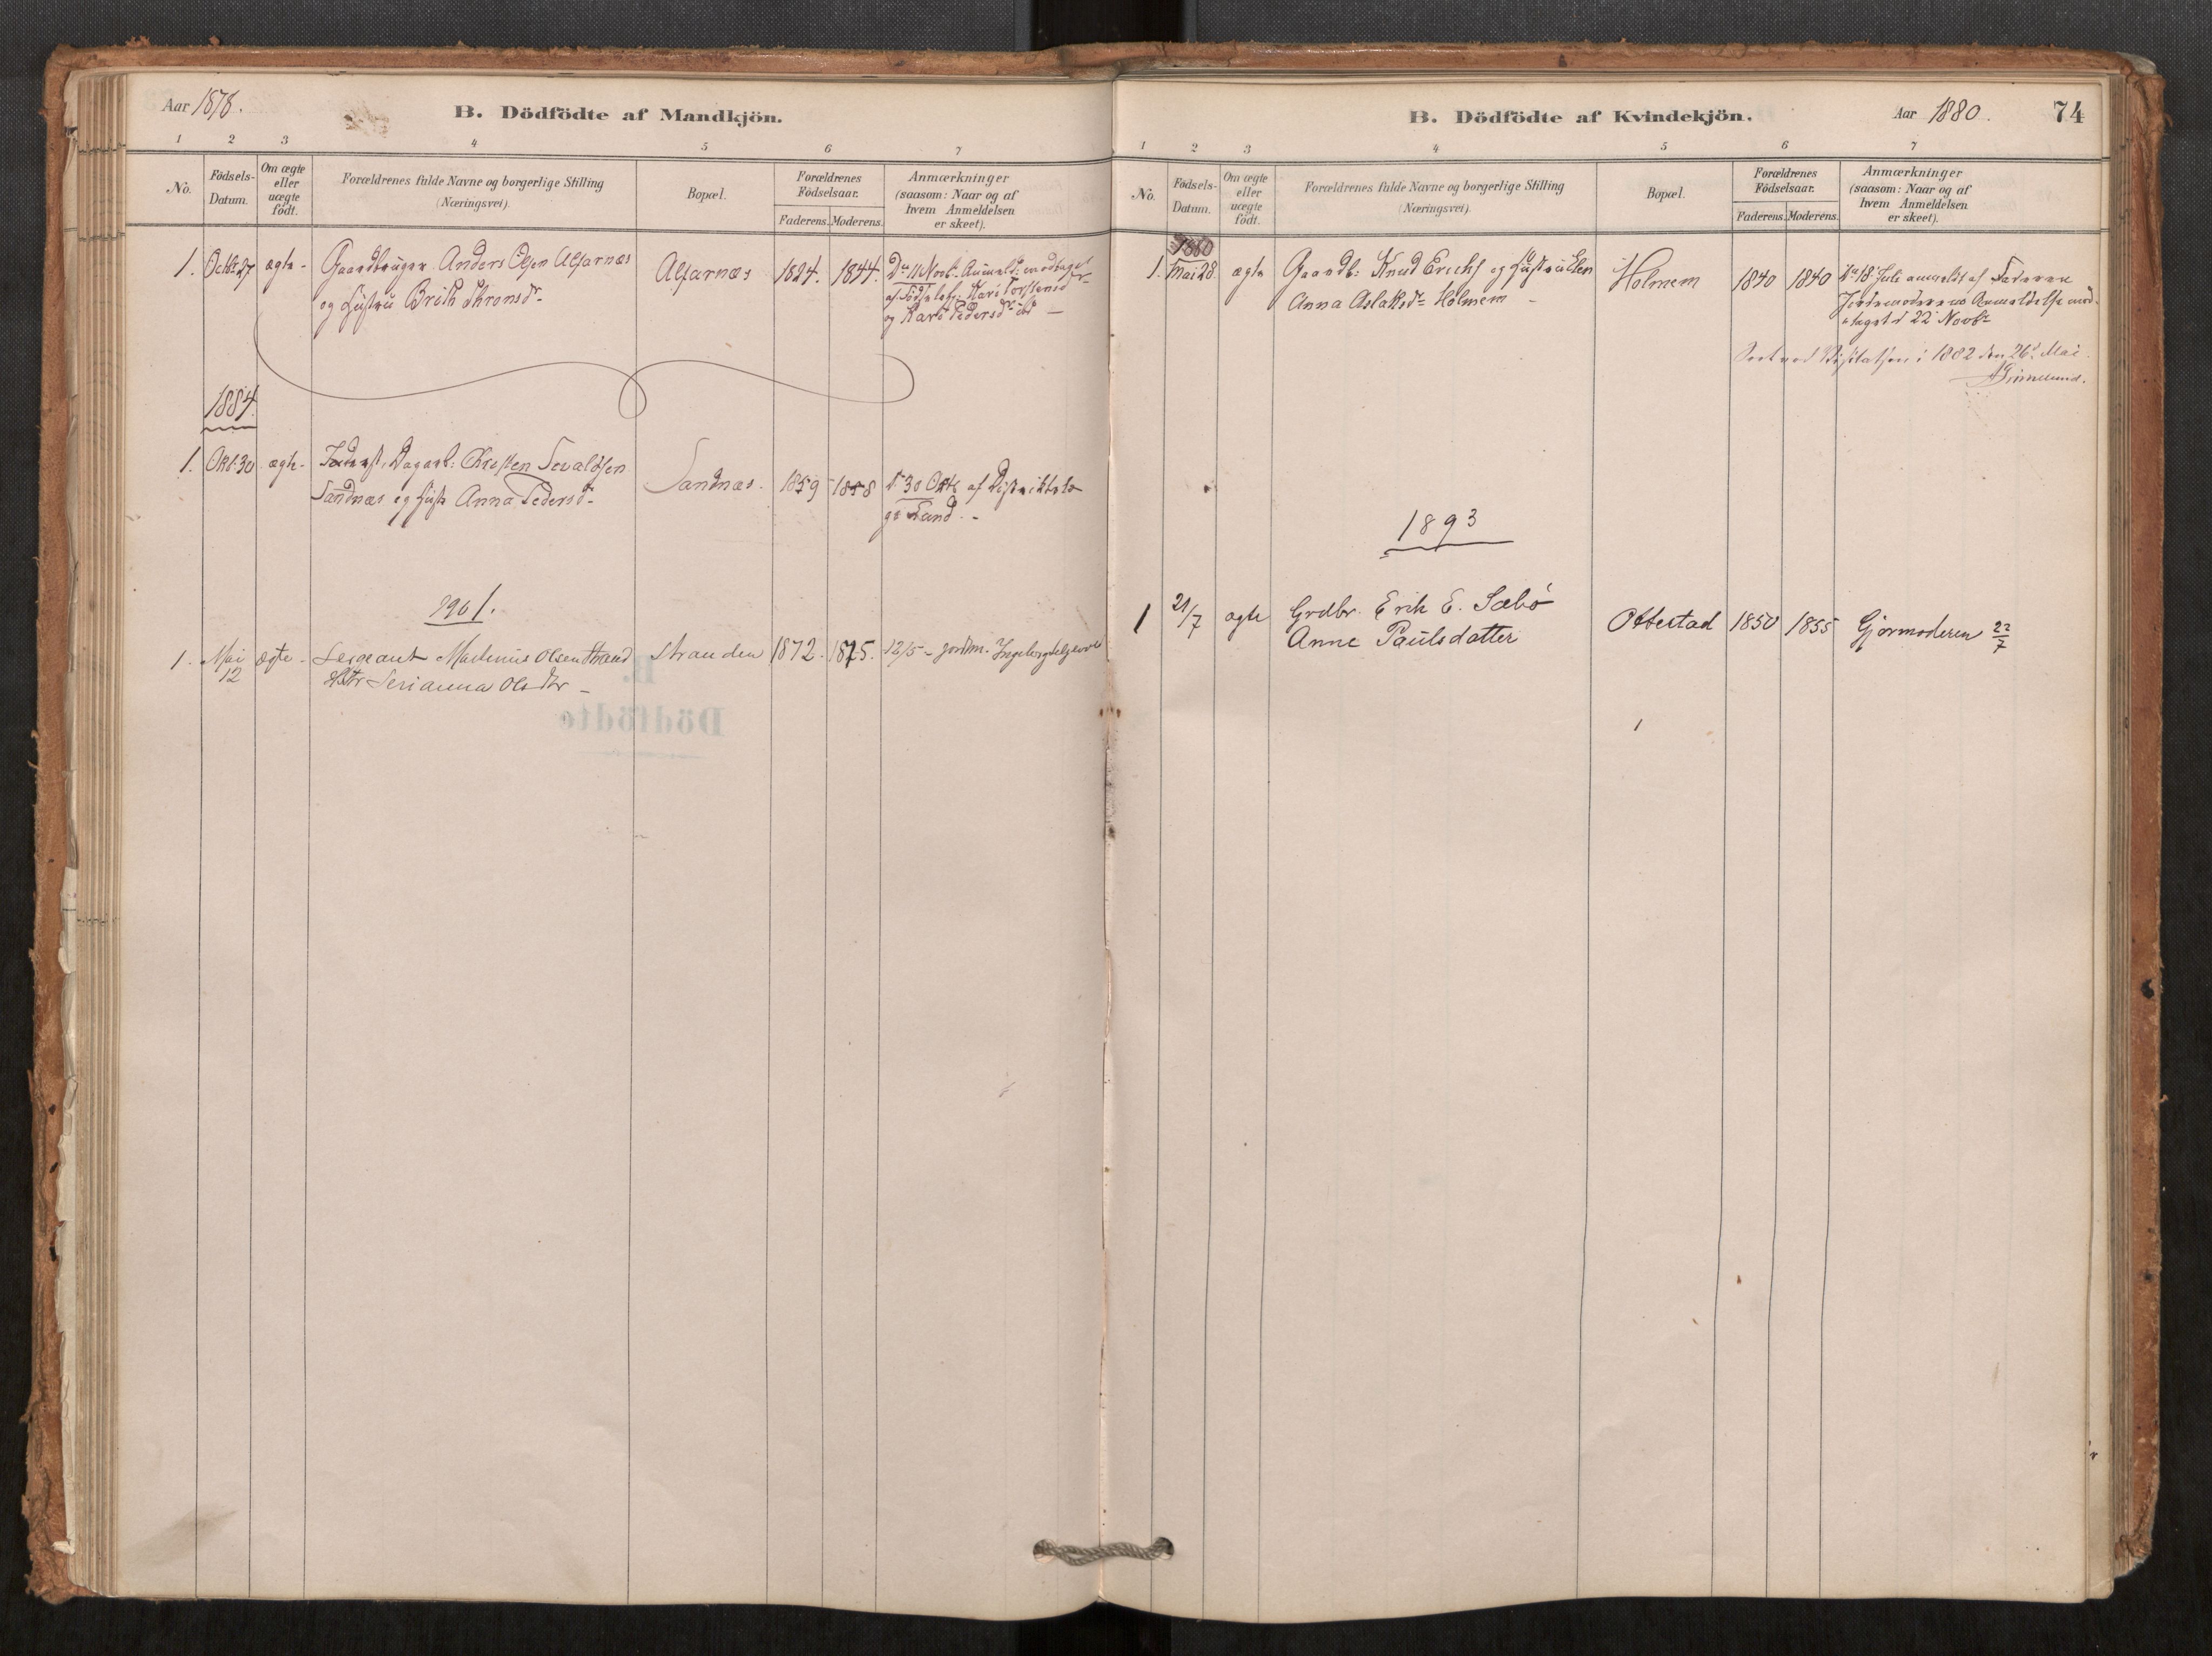 Aar 1878.
B. Dödfödte af Mandkjön.
1 2 3 4 5 6 7
No.
Födsels-
Datum.
Om ægte
eller
uægte
födt.
Forældrenes fulde Navne og borgerlige Stilling
(Næringsvei).
Bopæl.
Forældrenes
Födselsaar.
Faderens. Moderens.
Anmærkninger
(saasom: Naar og af
hvem Anmeldelsen
er skeet).
1. Octbr 27 ægte - Gaardbruger Anders Olsen Alfarnæs
og Hustru Brith
Alfarnæs 1824. 1844.
Dn 11 Novb. Anmeld: modtaget
Kari Torstensdr
og Kari Pedersdr ibd —
1884.
1. Okt. 30 ægte - Inderst, Dagarb: Christen Sevaldsen
Sandnæs og Hustr Anna Pedersdr -
Sandnæs. 1859 1858
d 30 Oktb af Distriktslæ
ge Sand. -
1901.
1. Mai
12
ægte - Sergeant Martinus Olsen Strand
Hstr Serianna Olsdtr -
Stranden 1872. 1875. 12/5 - jordm. Ingeborg
B. Dödfödte af Kvindekjön.
Aar 1880.
74
1 2 3 4 5 6 7
No.
Födsels-
Datum.
Om ægte
eller
uægte
födt.
Forældrenes fulde Navne og borgerlige Stilling
(Næringsvei).
Bopæl.
Forældrenes
Födselsaar.
Faderens. Moderens.
Anmærkninger
(saasom: Naar og af
hvem Anmeldelsen
er skeet).
1880
1. Mai 28. ægte Gaardb: Knud Erichs og Hustru Elen
Anna Aslaksdr Holmem -
Holmem 1840 1840
Dn 18 Juli anmeldt af Faderen
Jordemoderens Anmeldelse mod-
taget d 22 Novbr
Seet ved Visitatsen i 1882 den 26de Mai.
1893
1 21/7 ægte Grdbr. Erik E. Sæbö
Anne Paulsdatter
Ottestad 1850 1855 Gjormoderen 22/7